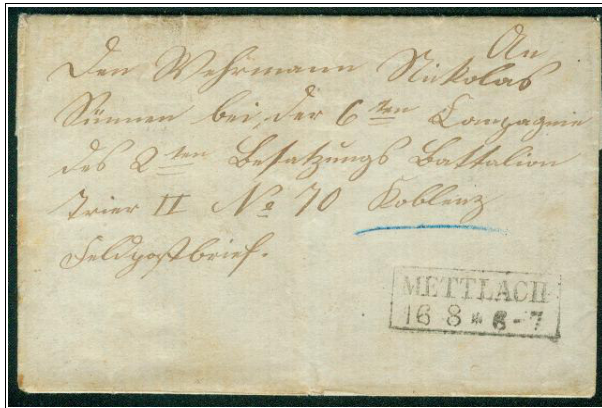 An
Den Wehrmann Nickolas
Sünnen bei der 6ten Compagnie
des 2ten Besatzungs Battalion
Trier II No 70 Koblenz
Feldpostbrief.
METTLACH
16 8 * 6-7